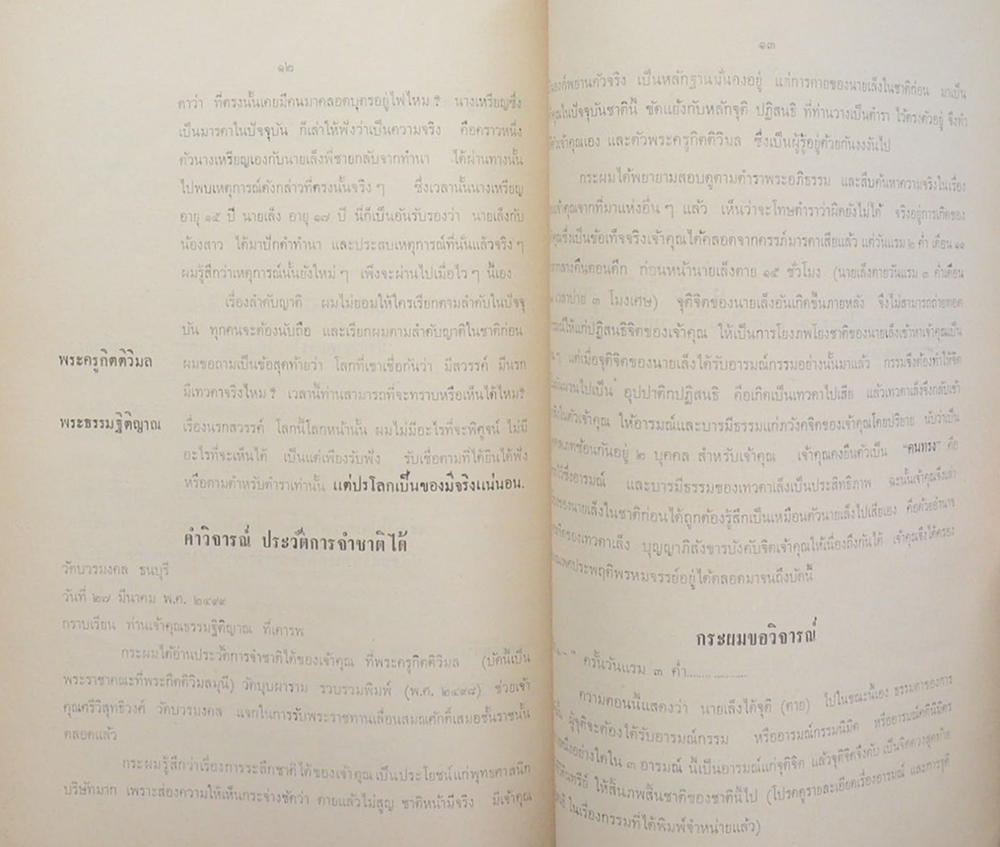 ๑๒
ดาว่า ที่ตรงนั้นเคยมีคนมาคลอดบุตรอยู่ไฟไหม ? นางเหรียญซึ่ง
เป็นมารดาในปัจจุบัน ก็เล่าให้ฟังว่าเป็นความจริง คือคราวหนึ่ง
ตัวนางเหรียญเองกับนายเล็งพี่ชายกลับจากทำนา ได้ผ่านทางนั้น
ไปพบเหตุการณ์ดังกล่าวที่ตรงนั้นจริง ๆ ซึ่งเวลานั้นนางเหรียญ
อายุ ๑๕ ปี นายเล็ง อายุ ๑๗ ปี นี่ก็เป็นอันรับรองว่า นายเล็งกับ
น้องสาว ได้มาปักดำทำนา และประสบเหตุการณ์ที่นั่นแล้วจริง ๆ
ผมรู้สึกว่าเหตุการณ์นั้นยังใหม่ ๆ เพิ่งจะผ่านไปเมื่อไว ๆ นี้เอง
เรื่องลำดับญาติ ผมไม่ยอมให้ใครเรียกตามลำดับในปัจจุ
บัน ทุกคนจะต้องนับถือ และเรียกผมตามลำดับญาติในชาติก่อน
พระครูกิตติวิมล ผมขอถามเป็นข้อสุดท้ายว่า โลกที่เขาเชื่อกันว่า มีสวรรค์ มีนรก
มีเทวดาจริงไหม ? เวลานี้ท่านสามารถที่จะทราบหรือเห็นได้ไหม ?
พระธรรมฐิติญาณ เรื่องนรกสวรรค์ โลกนี้โลกหน้านั้น ผมไม่มีอะไรที่จะพิศูจน์ ไม่มี
อะไรที่จะเห็นได้ เป็นแต่เพียงรับฟัง รับเชื่อตามที่ได้ยินได้ฟัง
หรือถามตำหรับตำราเท่านั้น แต่ปรโลกเป็นของมีจริงแน่นอน.
คำวิจารณ์ ประวัติการจำชาติได้
วัดบวรมงคล ธนบุรี
วันที่ ๒๗ มีนาคม พ.ศ. ๒๔๙๙
กราบเรียน ท่านเจ้าคุณธรรมฐิติญาณ ที่เคารพ
กระผมได้อ่านประวัติการจำชาติได้ของเจ้าคุณ ที่พระครูกิตติวิมล (บัดนี้เป็น
พระราชาคณะที่พระกิตติวิมลมุนี) วัดบุบผาราม รวบรวมพิมพ์ (พ.ศ. ๒๔๙๘) ช่วยเจ้า
คุณศรีวิสุทธิวงศ์ วัดบวรมงคล แจกในการรับพระราชทานเลื่อนสมณศักดิ์เสมอชั้นราชนั้น
ตลอดแล้ว
กระผมรู้สึกว่าเรื่องการระลึกชาติได้ของเจ้าคุณ เป็นประโยชน์แก่พุทธศาสนิก
บริษัทมาก เพราะส่องความให้เห็นกระจ่างชัดว่า ตายแล้วไม่สูญ ชาติหน้ามีจริง มีเจ้าคุณ
๑๓
องค์พยานตัวจริง เป็นหลักฐานมั่นคงอยู่ แต่การตายของนายเล็งในชาติก่อน มาเป็น
คุณในปัจจุบันชาตินี้ ขัดแย้งกับหลักจุติ ปฏิสนธิ ที่ท่านวางเป็นตำรา ไว้ตรงตัวอยู่ จึงทำ
เจ้าคุณเอง และตัวพระครูกิตติวิมล ซึ่งเป็นผู้รู้อยู่ด้วยกันงงงันไป
กระผมได้พยายามสอบดูตามตำราพระอภิธรรม และสืบค้นหาความจริงในเรื่อง
เจ้าคุณจากที่มาแห่งอื่น ๆ แล้ว เห็นว่าจะโทษตำราว่าผิดยังไม่ได้ จริงอยู่การเกิดของ
คุณซึ่งเป็นข้อเท็จจริงเจ้าคุณได้คลอดจากครรภ์มารดาเสียแล้ว แต่วันแรม ๒ ค่ำ เดือน ๑๑
กลางคืนตอนดึก ก่อนหน้านายเล็งตาย ๑๕ ชั่วโมง (นายเล็งตายวันแรม ๓ ค่ำเดือน
เวลาบ่าย ๓ โมงเศษ) จุติจิตของนายเล็งอันเกิดขึ้นภายหลัง จึงไม่สามารถถ่ายทอด
ให้แก่ปฏิสนธิจิตของเจ้าคุณ ให้เป็นการโยงภพโยงชาติของนายเล็งเข้าหาเจ้าคุณเป็น
ๆ แต่เมื่อจุติจิตของนายเล็งได้รับอารมณ์กรรมอย่างนั้นมาแล้ว กรรมจึงต้องทำให้จิต
ไปเป็น อุปปาติกปฏิสนธิ คือเกิดเป็นเทวดาไปเสีย แล้วเทวดาเล็งจึงกลับเข้า
ในตัวเจ้าคุณ ให้อารมณ์และบารมีธรรมแก่ภวังคจิตของเจ้าคุณโดยปริยาย นับว่าเป็น
ซ้อนกันอยู่ ๒ บุคคล สำหรับเจ้าคุณ เจ้าคุณคงยืนตัวเป็น “คนทรง” คือ
อารมณ์ และบารมีธรรมของเทวดาเล็งเป็นประสิทธิภาพ ฉะนั้นเจ้าคุณจึงเล่า
ของนายเล็งในชาติก่อนได้ถูกต้องรู้สึกเป็นเหมือนตัวนายเล็งไปเสียเอง คือด้วยอำนาจ
ของเทวดาเล็ง บุญญาภิสังขารบังคับจิตเจ้าคุณให้เนื่องถึงกันได้ เจ้าคุณจึงได้ครอง
เพศประพฤติพรหมจรรย์อยู่ได้ตลอดมาจนถึงบัดนี้
กระผมขอวิจารณ์
ครั้นวันแรม ๓ ค่ำ..................
ความตอนนี้แสดงว่า นายเล็งได้จุติ (ตาย) ไปในขณะนี้เอง ธรรมดาของการ
ผู้จุติจะต้องได้รับอารมณ์กรรม หรืออารมณ์กรรมนิมิต หรืออารมณ์คตินิมิตร
หนึ่งอย่างใดใน ๓ อารมณ์ นี้เป็นอารมณ์แก่จุติจิต แล้วจุติจิตจึงดับ เป็นจิตดวงสุดท้าย
ให้สิ้นภพสิ้นชาติของชาตินี้ไป (โปรดดูรายละเอียดเรื่องอารมณ์ และการจุติ
ในเรื่องกรรมที่ได้พิมพ์จำหน่ายแล้ว)